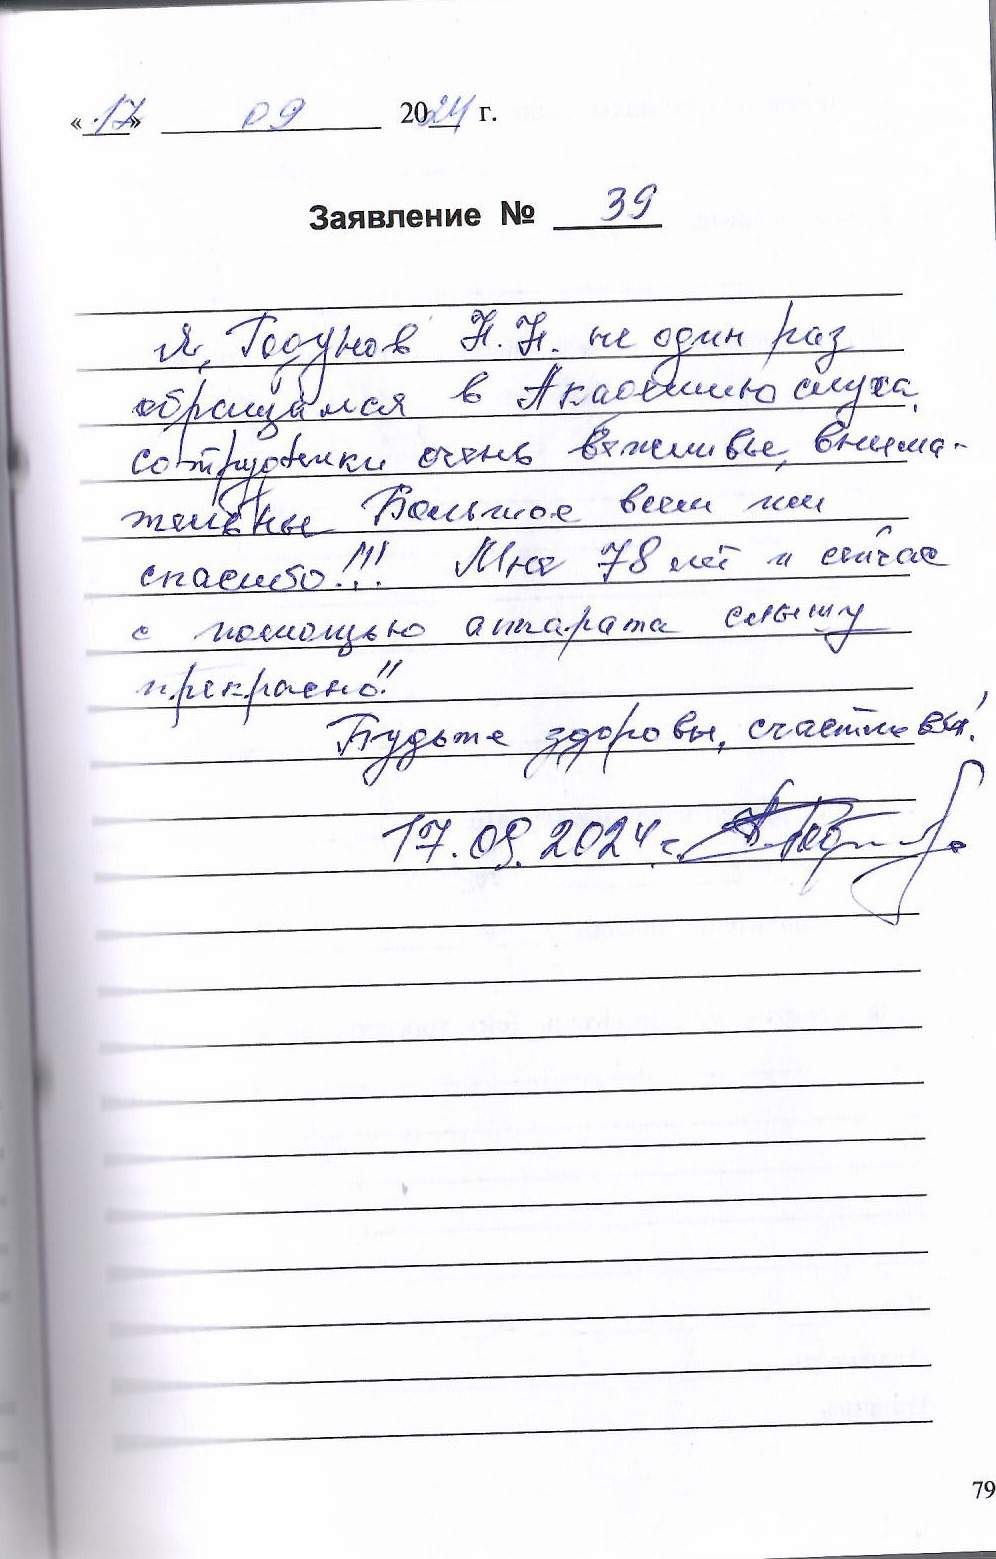 «17» 09 2024 г.
Заявление № 39
Я, Годунов Н. Н. не один раз
обращался в Академию слуха,
сотрудники очень вежливые, внима-
тельные Большое всем им
спасибо!!! Мне 78 лет и сейчас
с помощью аппарата слышу
прекрасно!!
Будьте здоровы, счастливы!
17.09.2024 г.
79